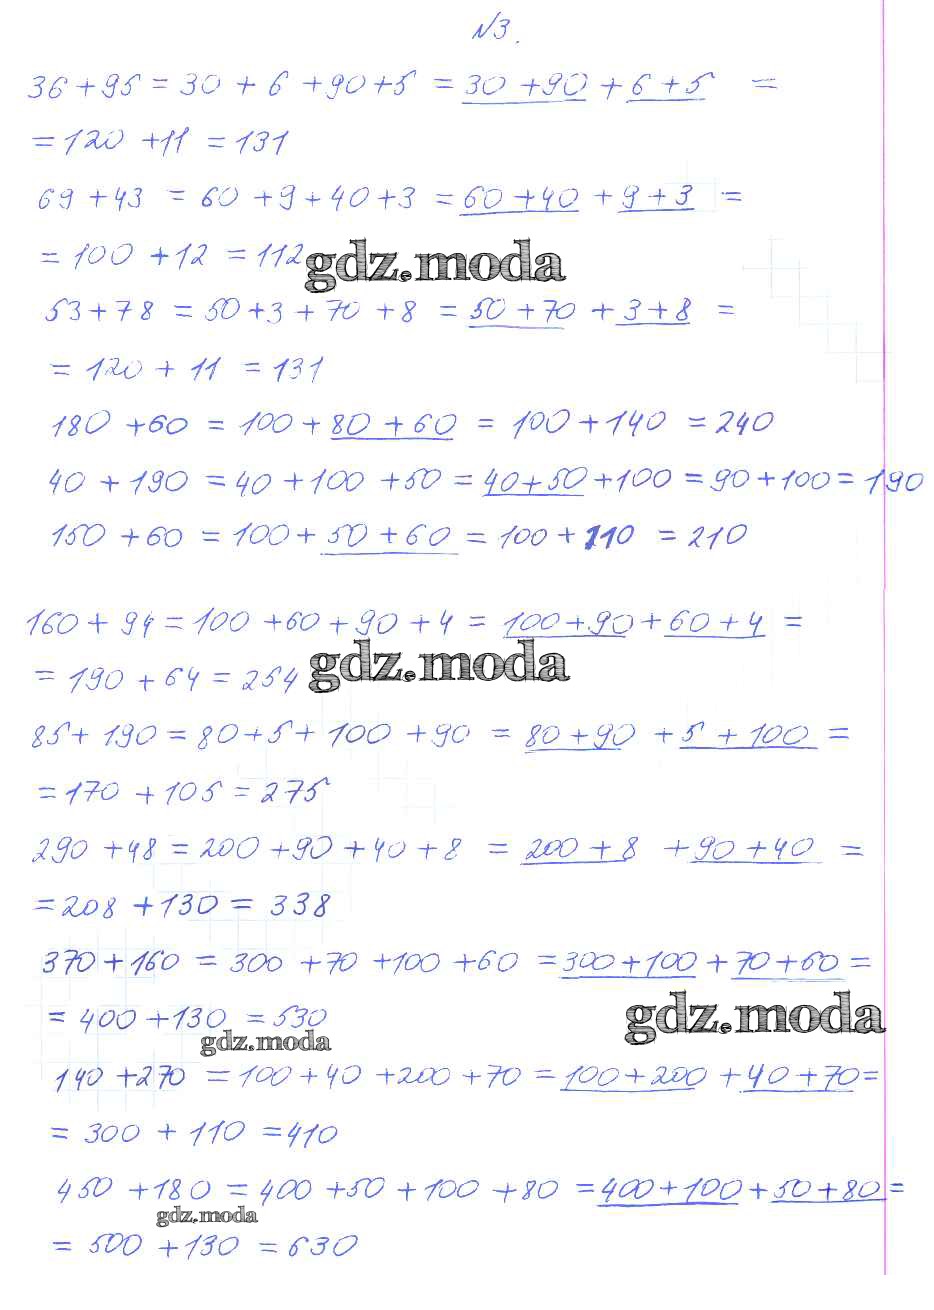 №3.
36 + 95 = 30 + 6 + 90 + 5 = 30 + 90 + 6 + 5 =
= 120 + 11 = 131
69 + 43 = 60 + 9 + 40 + 3 = 60 + 40 + 9 + 3 =
= 100 + 12 = 112
gdz.moda
53 + 78 = 50 + 3 + 70 + 8 = 50 + 70 + 3 + 8 =
= 120 + 11 = 131
180 + 60 = 100 + 80 + 60 = 100 + 140 = 240
40 + 190 = 40 + 100 + 50 = 40 + 50 + 100 = 90 + 100 = 190
150 + 60 = 100 + 50 + 60 = 100 + 110 = 210
160 + 94 = 100 + 60 + 90 + 4 = 100 + 90 + 60 + 4 =
= 190 + 64 = 254
gdz.moda
85 + 190 = 80 + 5 + 100 + 90 = 80 + 90 + 5 + 100 =
= 170 + 105 = 275
290 + 48 = 200 + 90 + 40 + 8 = 200 + 8 + 90 + 40 =
= 208 + 130 = 338
370 + 160 = 300 + 70 + 100 + 60 = 300 + 100 + 70 + 60 =
= 400 + 130 = 530
gdz.moda
gdz.moda
140 + 270 = 100 + 40 + 200 + 70 = 100 + 200 + 40 + 70 =
= 300 + 110 = 410
450 + 180 = 400 + 50 + 100 + 80 = 400 + 100 + 50 + 80 =
gdz.moda
= 500 + 130 = 630